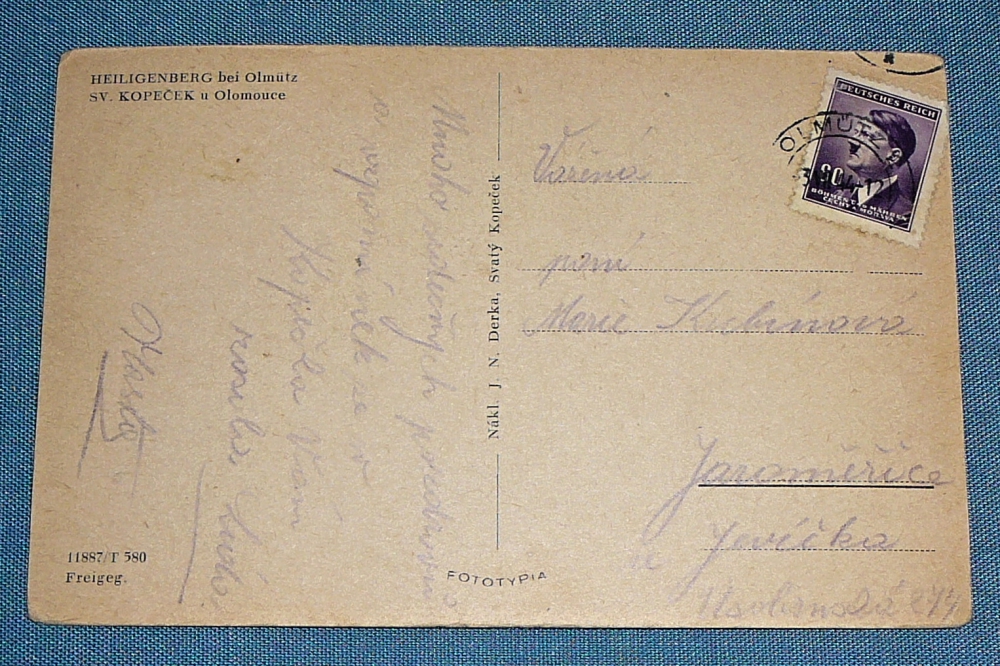 HEILIGENBERG bei Olmütz
SV. KOPEČEK u Olomouce
Mnoho srdečných pozdravů
a vzpomínek se sv.
Kopečka Vám
Vlasta
11887/T 580
Freigeg.
Nákl. J. N. Derka, Svatý Kopeček
FOTOTYPIA
DEUTSCHES REICH
OLMÜTZ
60
BÖHMEN UND MÄHREN
ČECHY A MORAVA
Vážená
paní
Marie
Jaroměřice
u Jevíčka